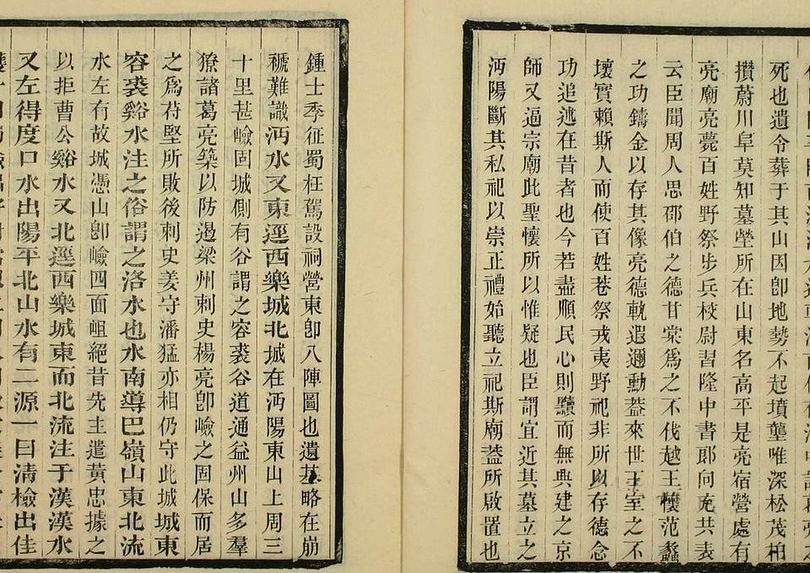 死也遺令葬于其山因卽地勢不起墳壟唯深松茂柏
攢蔚川阜莫知墓塋所在山東名高平是亮宿營處有
亮廟亮薨百姓野祭步兵校尉習隆中書郎向充共表
云臣聞周人思邵伯之德甘棠爲之不伐越王懷范蠡
之功鑄金以存其像亮德軌遐邇勳蓋來世王室之不
壞實賴斯人而使百姓巷祭戎夷野祀非所以存德念
功追述在昔者也今若盡順民心則黷而無典建之京
師又逼宗廟此聖懷所以惟疑也臣謂宜近其墓立之
沔陽斷其私祀以崇正禮始聽立祀斯廟蓋所啟置也
鍾士季征蜀枉駕設祠營東卽八陣圖也遺基略在崩
褫難識沔水又東逕西樂城北城在沔陽東山上周三
十里甚嶮固城側有谷謂之容裘谷道通益州山多羣
獠諸葛亮築以防遏梁州刺史楊亮卽嶮之固保而居
之爲苻堅所敗後刺史姜守潘猛亦相仍守此城城東
容裘谿水注之俗謂之洛水也水南導巴嶺山東北流
水左有故城憑山卽嶮四面岨絕昔先主遣黃忠據之
以拒曹公谿水又北逕西樂城東而北流注于漢漢水
又左得度口水出陽平北山水有二源一曰清檢出佳